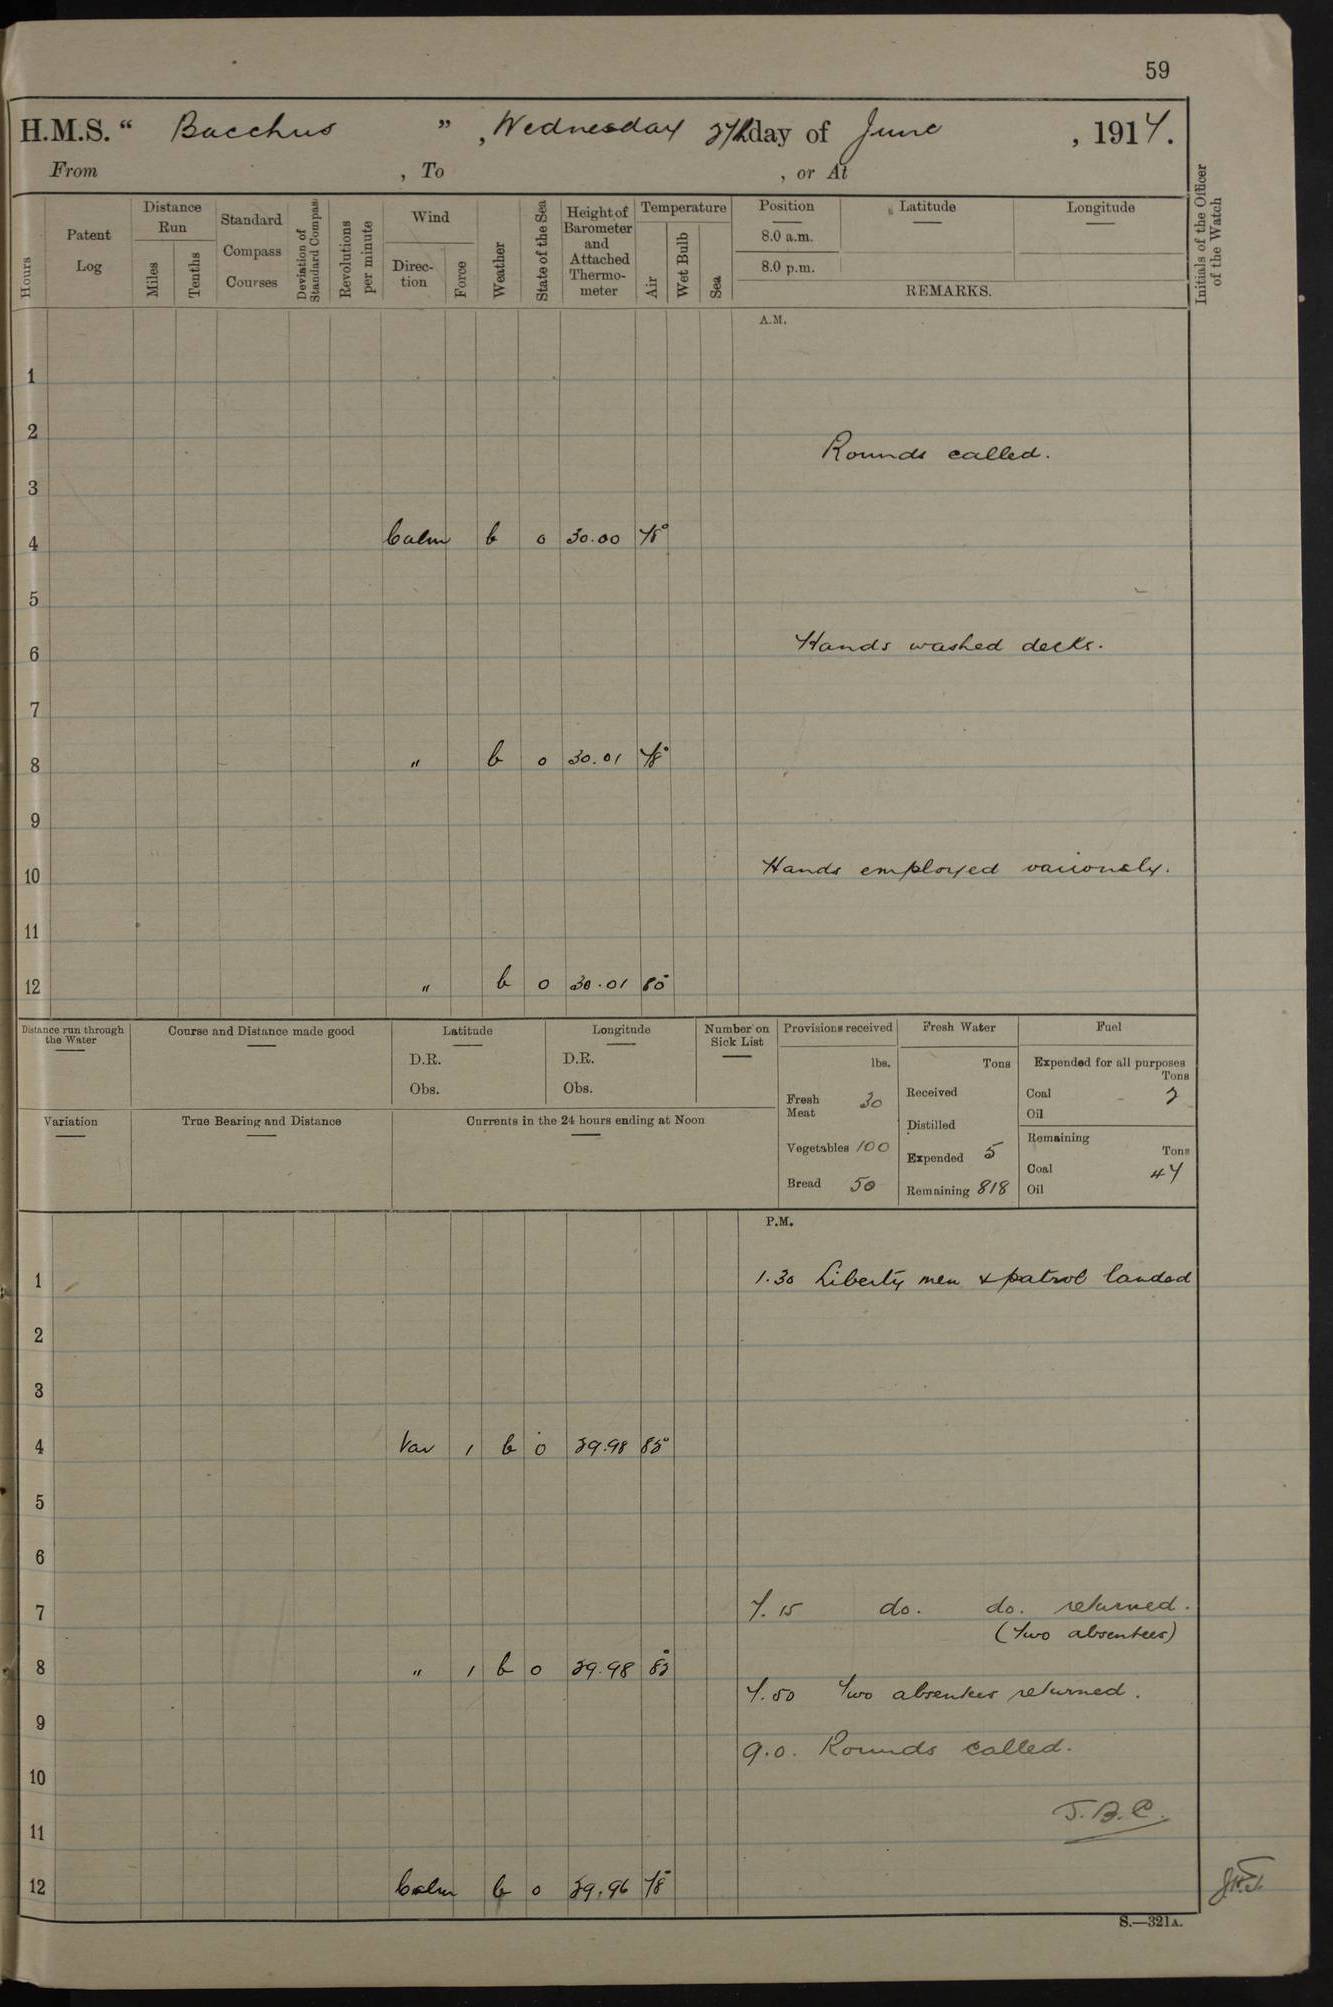 59
H.M.S. " Bacchus " , Wednesday 27th day of June , 1917.
From , To , or At
Hours
Patent Log
Distance Run
Miles
Tenths
Standard Compass Courses
Deviation of Standard Compass
Revolutions per minute
Wind
Direction
Force
Weather
State of the Sea
Height of Barometer and Attached Thermometer
Temperature
Air
Wet Bulb
Sea
Position
8.0 a.m.
8.0 p.m.
Latitude
Longitude
REMARKS.
Initials of the Officer of the Watch
A.M.
1
2
Rounds called.
3
4 Calm b 0 30.00 75°
5
6 Hands washed decks.
7
8 " b 0 30.01 78°
9
10 Hands employed variously.
11
12 " b 0 30.01 80°
Distance run through the Water
Course and Distance made good
Latitude
D.R.
Obs.
Longitude
D.R.
Obs.
Number on Sick List
Provisions received
lbs.
Fresh Meat 30
Vegetables 100
Bread 50
Fresh Water
Tons
Received
Distilled
Expended 5
Remaining 818
Fuel
Expended for all purposes
Tons
Coal - 2
Oil
Remaining
Tons
Coal 47
Oil
Variation
True Bearing and Distance
Currents in the 24 hours ending at Noon
P.M.
1 1.30 Liberty men & patrol landed
2
3
4 Var 1 b 0 29.98 85°
5
6
7 7.15 do. do. returned.
(Two absentees)
8 " 1 b 0 29.98 82°
7.50 Two absentees returned.
9
9.0. Rounds called.
10
J.B.C.
11
12 Calm b 0 29.96 78°
S.—321A.